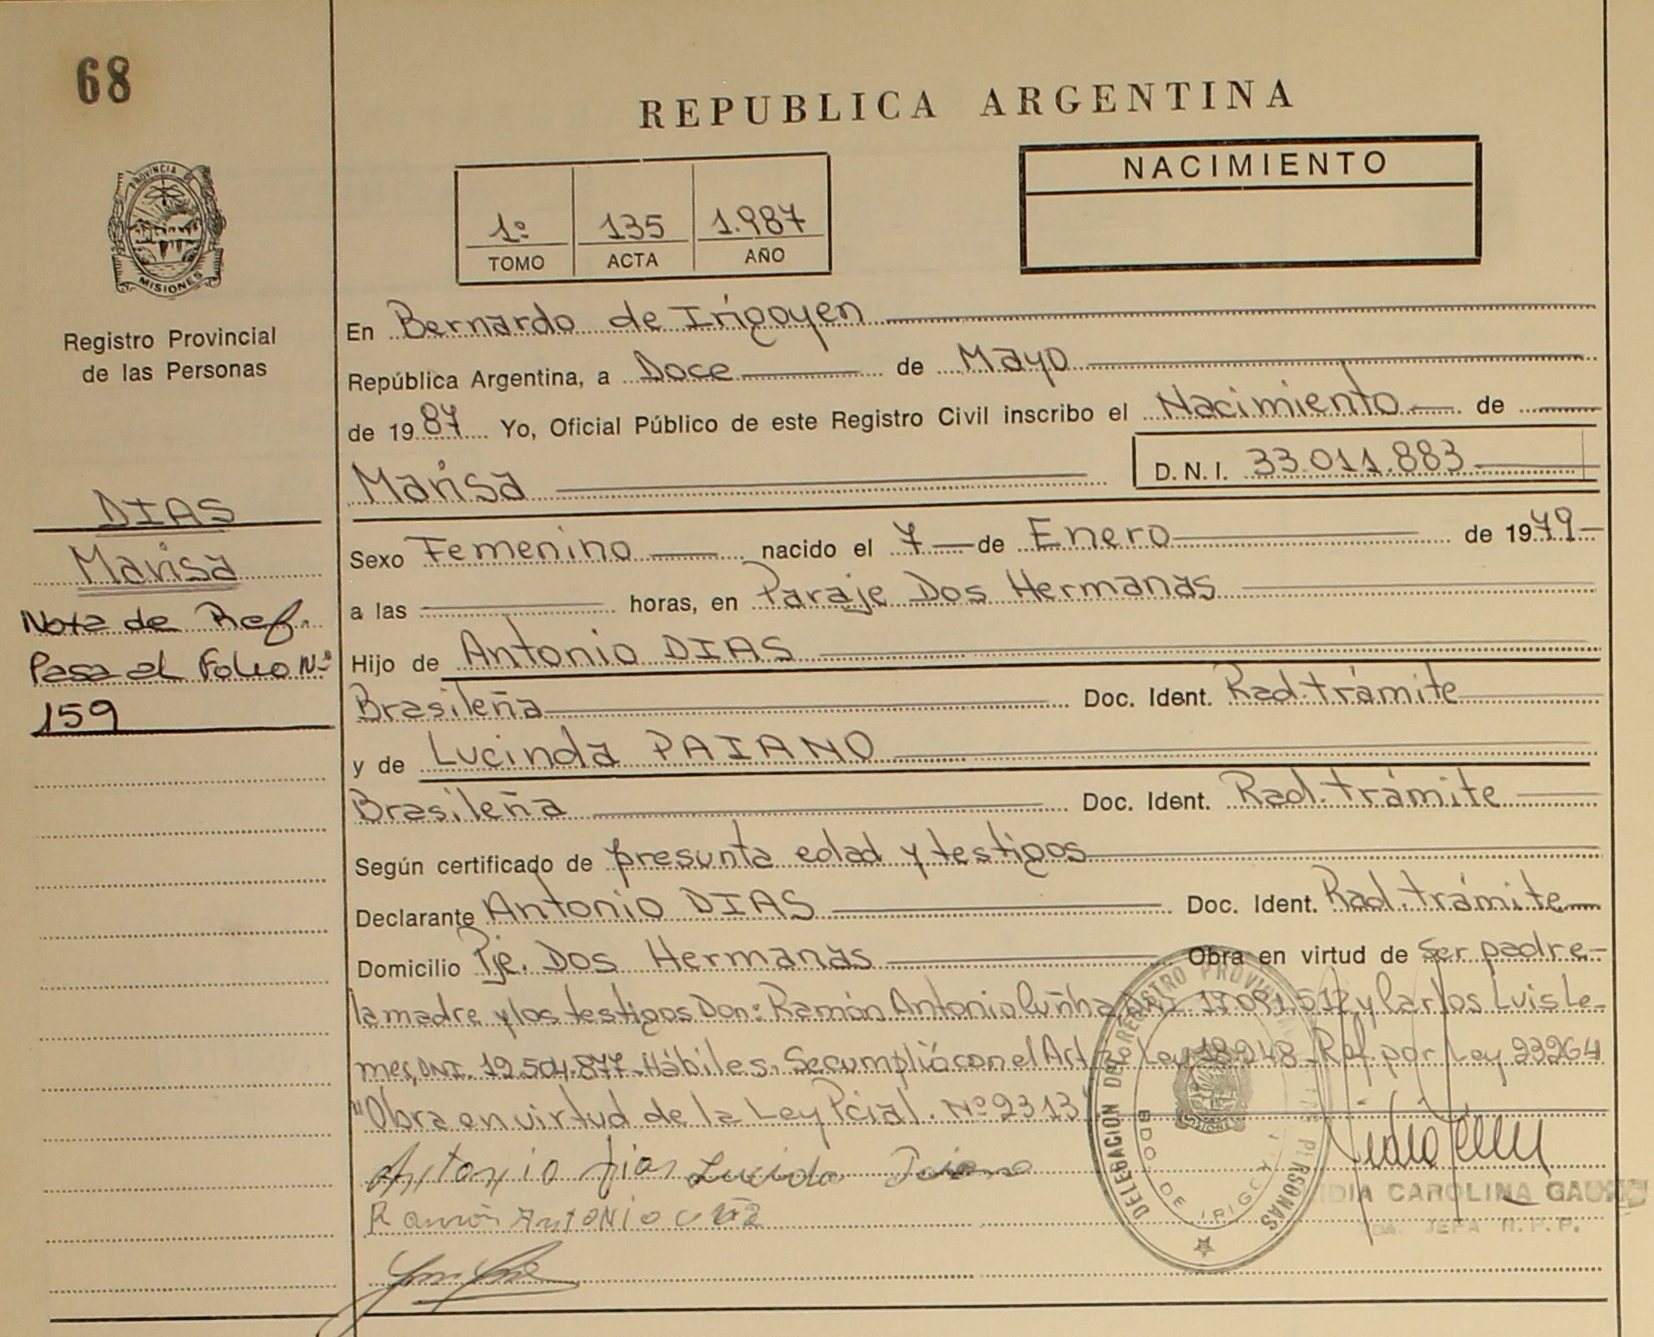 68
REPUBLICA ARGENTINA
PROVINCIA DE
MISIONES
1º 135 1.987
TOMO ACTA AÑO
NACIMIENTO
Registro Provincial
de las Personas
En Bernardo de Irigoyen
República Argentina, a Doce de Mayo
de 1987 Yo, Oficial Público de este Registro Civil inscribo el Nacimiento de
Marisa D.N.I. 33.011.883
DIAS
Marisa
Nota de Ref.
Pasa al Folio Nº
159
Sexo Femenino nacido el 7 de Enero de 1979
a las horas, en Paraje Dos Hermanas
Hijo de Antonio DIAS
Brasileña Doc. Ident. Rad. trámite
y de Lucinda PAIANO
Brasileña Doc. Ident. Rad. trámite
Según certificado de presunta edad y testigos
Declarante Antonio DIAS Doc. Ident. Rad. trámite
Domicilio Pje. Dos Hermanas Obra en virtud de Ser padre-
la madre y los testigos Don: Ramón Antonio Cuñha, DNI. 17.091.512 y Carlos Luis Le-
mes, DNI. 12.504.877. Hábiles. Se cumplió con el Art. Ley 18248 Ref. por Ley 23264
"Obra en virtud de la Ley Pcial. Nº 2313"
Antonio dias Lucida Paiano
Ramón ANTONIO
DELEGACION DEL REGISTRO PROVINCIAL DE LAS PERSONAS
BDO. DE IRIGOYEN
CAROLINA
JEFA R.P.P.